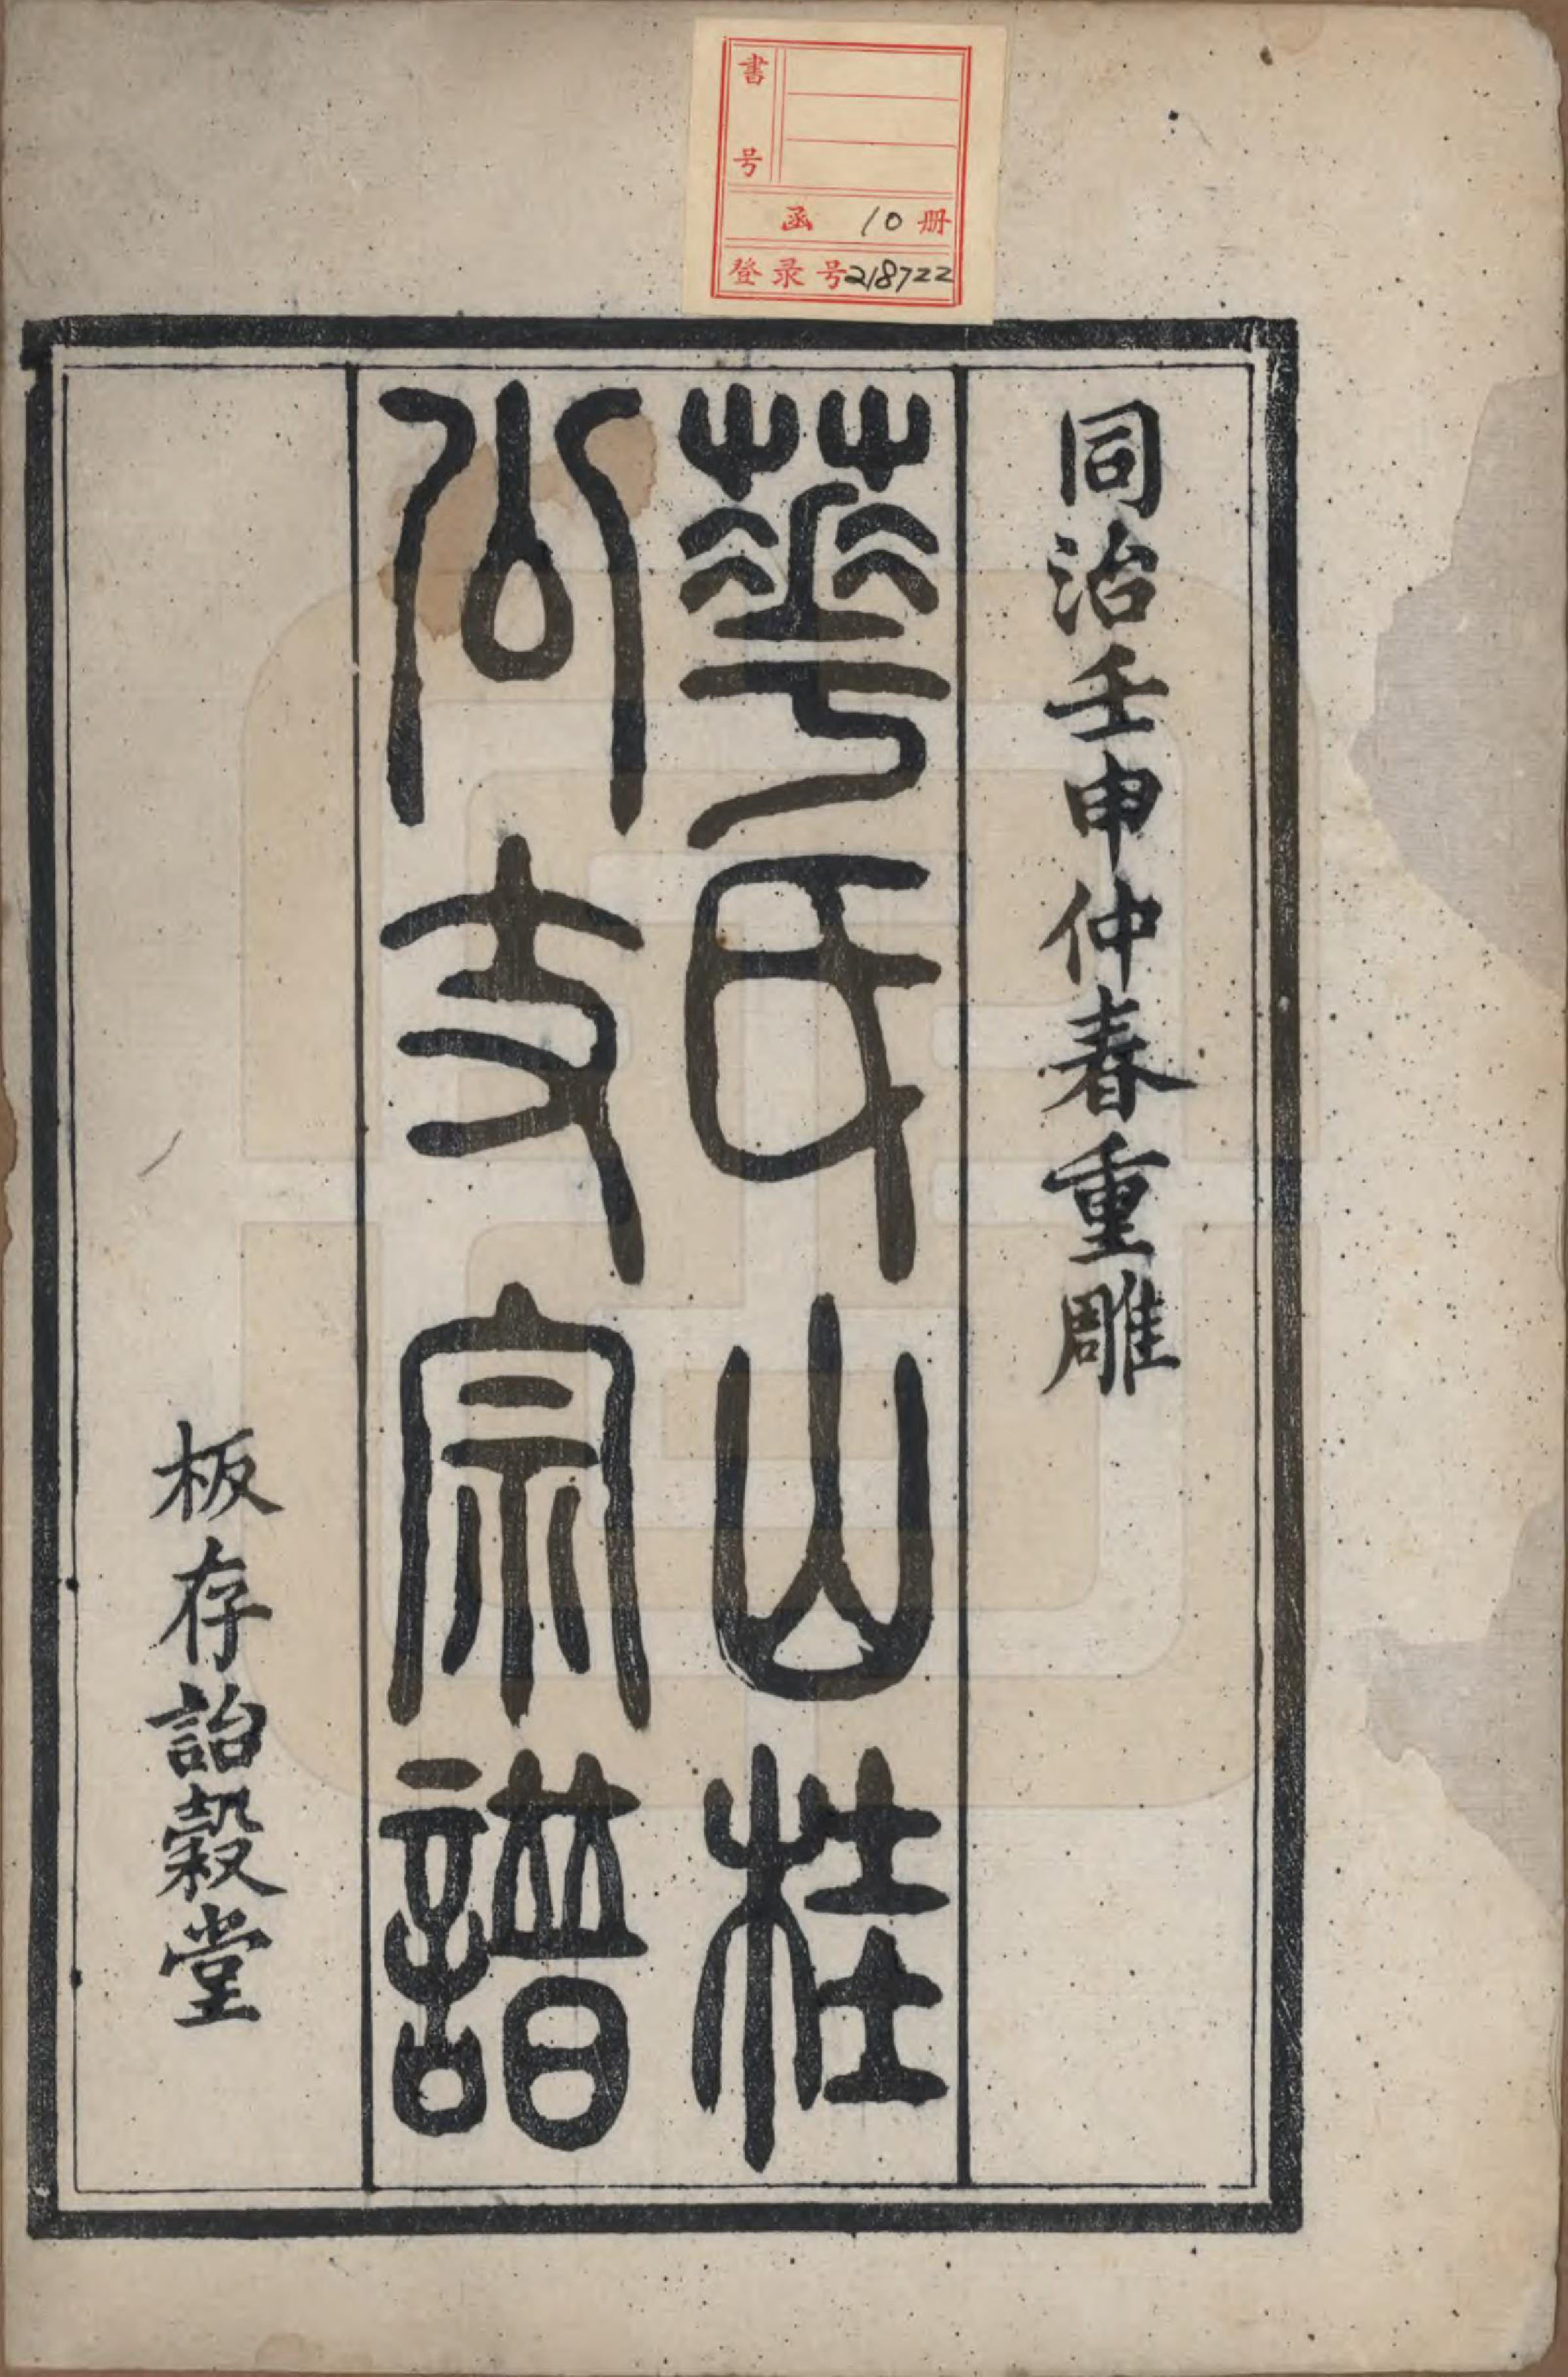 書号
函 10 册
登录号218722
同治壬申仲春重雕
華氏山桂
公支宗譜
板存詒穀堂